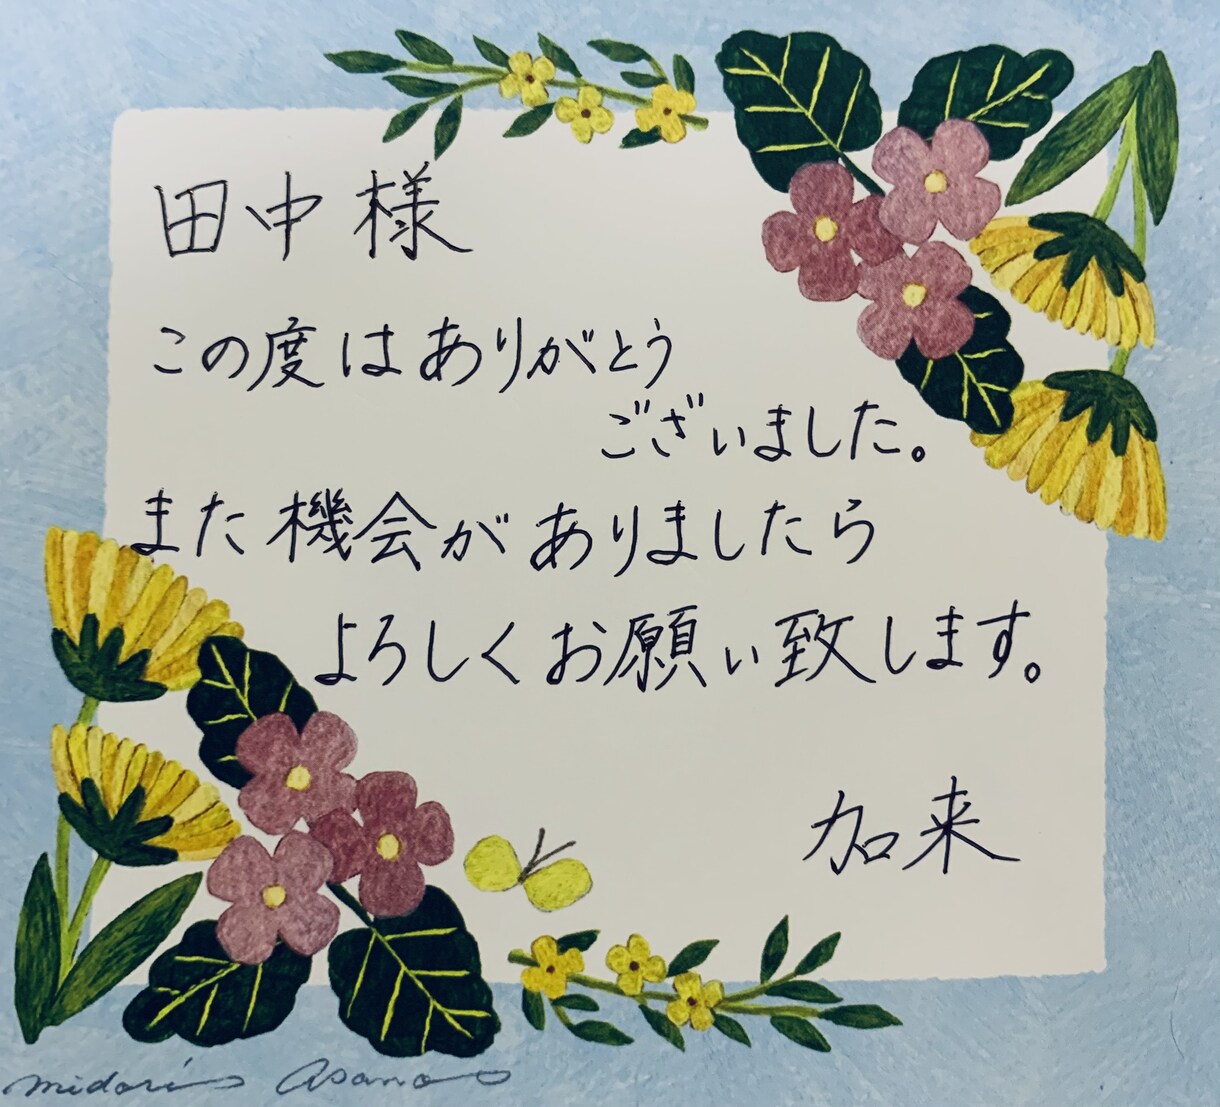 田中様
この度はありがとう
ございました。
また機会がありましたら
よろしくお願い致します。
加来
midori Asano